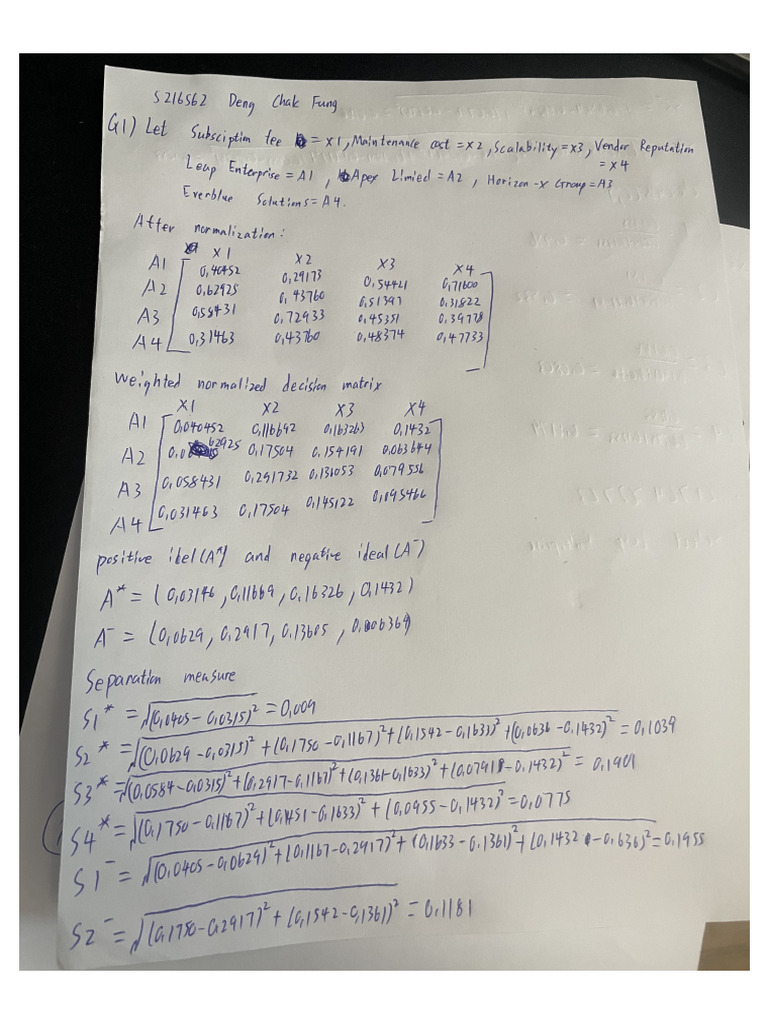 S216562 Deng Chak Fung
Q1) Let Subsciption fee = x1, Maintenance cost = x2, Scalability = x3, Vendor Reputation
= x4
Leap Enterprise = A1, Apex Limied = A2, Horizon-x Group = A3
Everblue Solutions = A4.
After normalization:
x1 x2 x3 x4
A1 0,40452 0,29173 0,54421 0,71600
A2 0,62925 0,43760 0,51397 0,31822
A3 0,58431 0,72933 0,45351 0,39778
A4 0,31463 0,43760 0,48374 0,47733
weighted normalized decision matrix
x1 x2 x3 x4
A1 0,040452 0,116692 0,163263 0,1432
A2 0,062925 0,17504 0,154191 0,063644
A3 0,058431 0,291732 0,136053 0,079556
A4 0,031463 0,17504 0,145122 0,095466
positive idel(A*) and negative ideal(A⁻)
A* = (0,03146, 0,11669, 0,16326, 0,1432)
A⁻ = (0,0629, 0,2917, 0,13605, 0,006364)
Separation measure
S1* = √(0,0405-0,0315)² = 0,009
S2* = √(0,0629-0,0315)² + (0,1750-0,1167)² + (0,1542-0,1633)² + (0,0636-0,1432)² = 0,1039
S3* = √(0,0584-0,0315)² + (0,2917-0,1167)² + (0,1361-0,1633)² + (0,0791-0,1432)² = 0,1901
S4* = √(0,1750-0,1167)² + (0,1451-0,1633)² + (0,0955-0,1432)² = 0,0775
S1⁻ = √(0,0405-0,0629)² + (0,1167-0,2917)² + (0,1633-0,1361)² + (0,1432-0,636)² = 0,1955
S2⁻ = √(0,1750-0,2917)² + (0,1542-0,1361)² = 0,1181